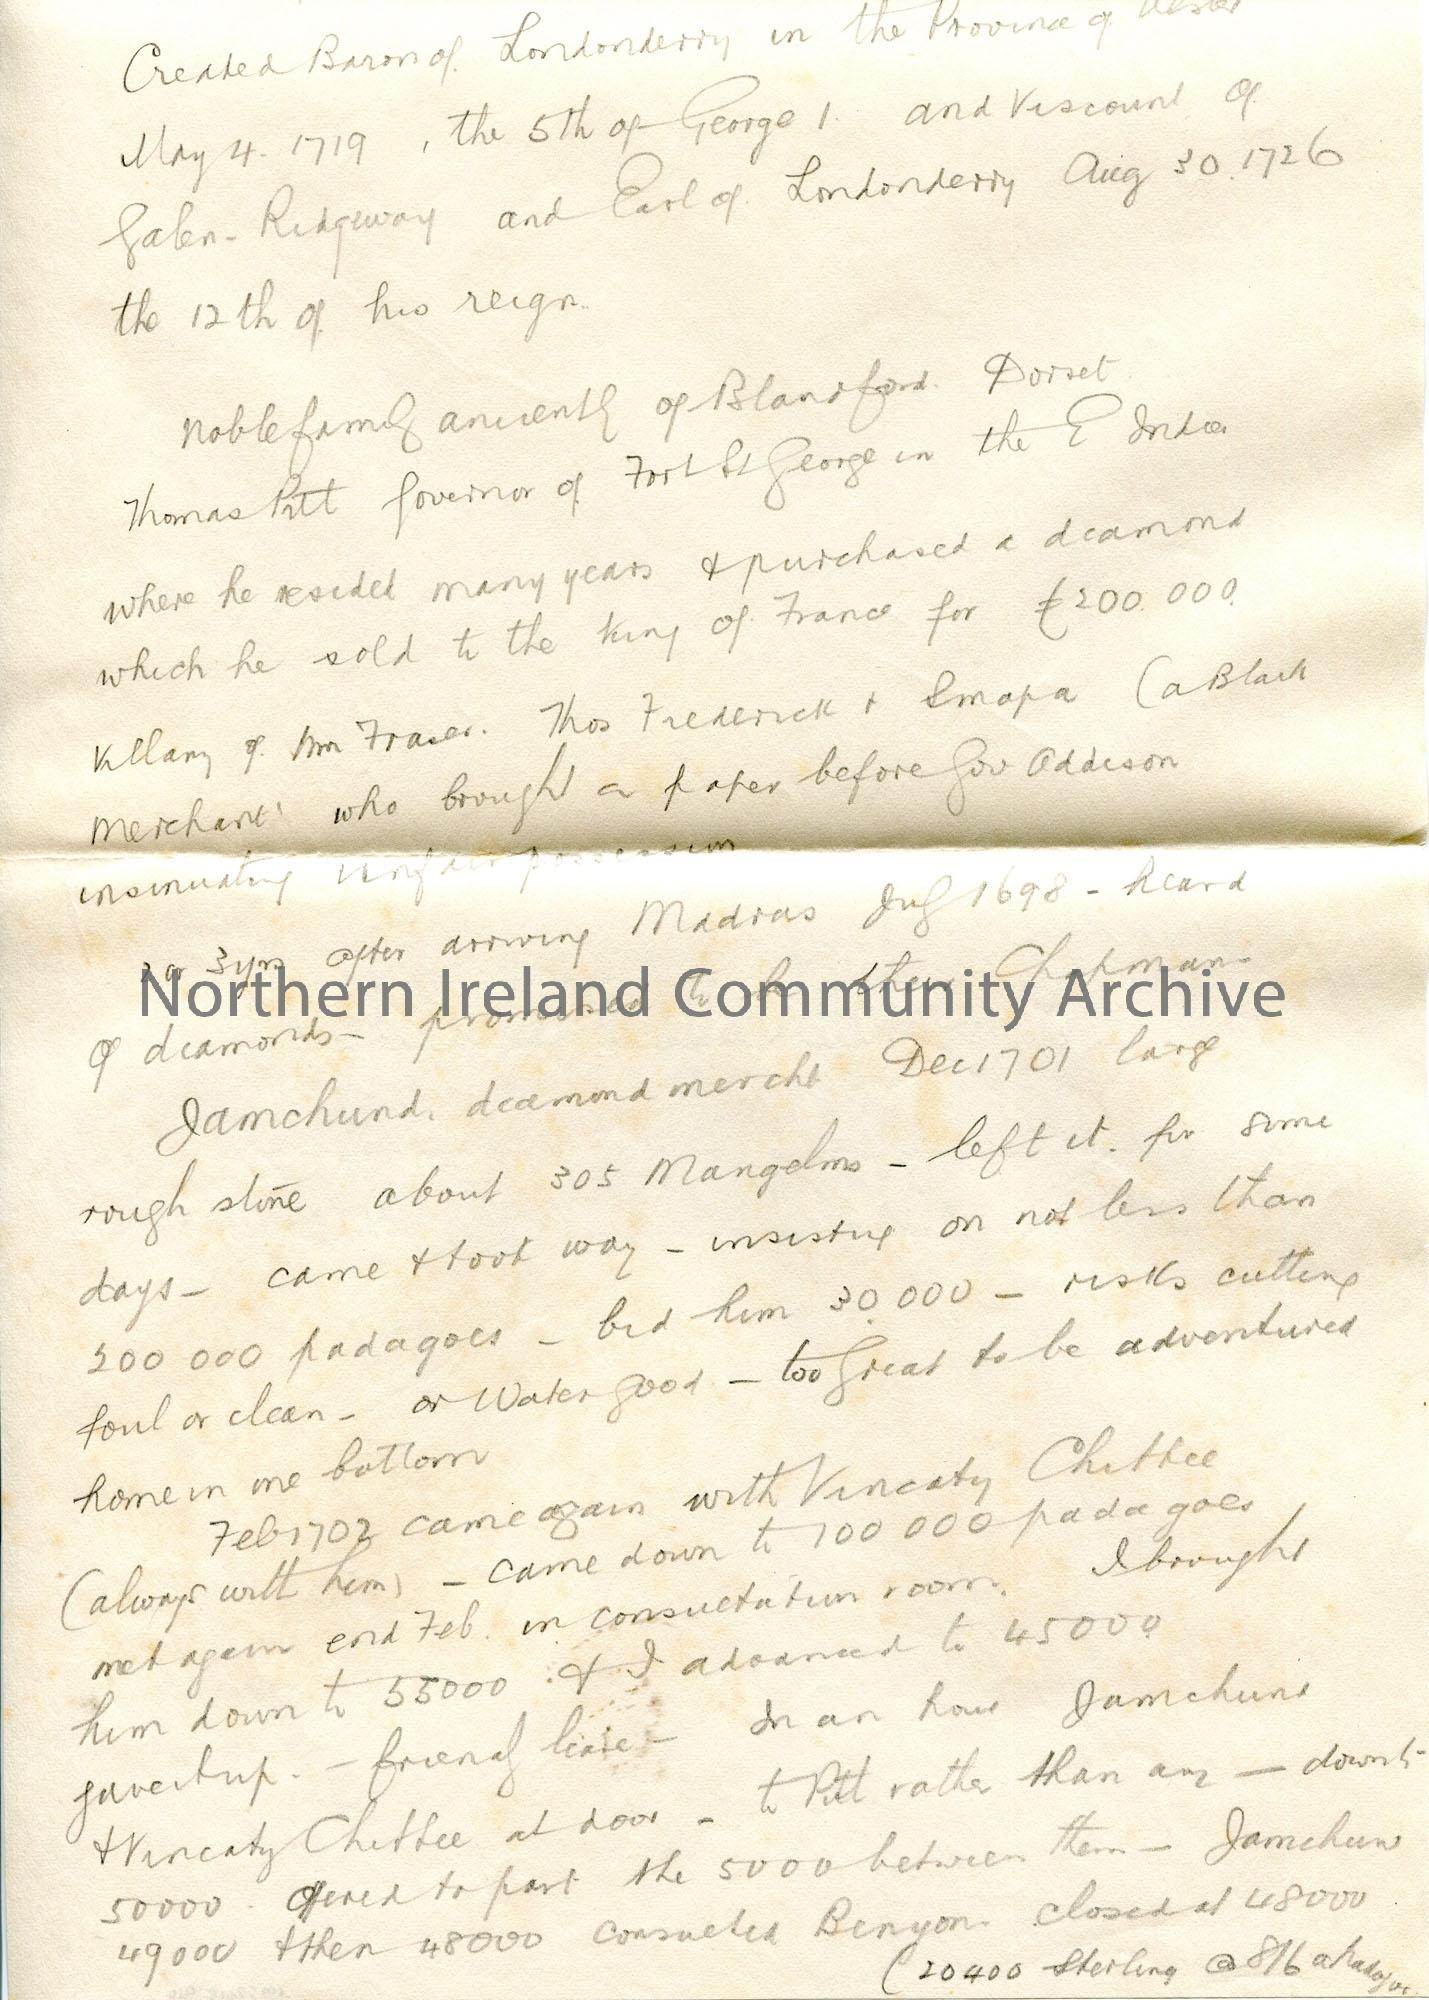 Created Baron of Londonderry in the Province of Ulster
May 4. 1719, the 5th of George 1. and Viscount of
Galen-Ridgeway and Earl of Londonderry Aug 30. 1726
the 12th of his reign.
Noble family anciently of Blandford. Dorset
Thomas Pitt Governor of Fort St George in the E India
where he resided many years & purchased a diamond
which he sold to the King of France for £200 000.
Villany of Mr Fraser. Thos Frederick & Smapa (a Black
Merchant' who brought a paper before Gov Addison
insinuating unfair possession
2 or 3 yrs after arriving Madras July 1698 - heard
Northern Ireland Community Archive
of diamonds - to Chapman
Jamchund. diamond mercht Dec 1701 large
rough stone about 305 Mangelins - left it. for some
days - came & took way - insisting on not less than
200 000 padagoes - bid him 30,000 - risks cutting
foul or clean - or Water good - too great to be adventured
home in one bottom
Feb 1702 came again with Vincaty Chittee
(always with him) - came down to 100 000 padagoes
met again end Feb. in consultation room. I brought
him down to 55000 & I advanced to 45000
gave it up. - friendly leave - In an hour Jamchund
& Vincaty Chittee at door - to Pitt rather than any - down to
50000. Offered to part the 5000 between them - Jamchund
49000 & then 48000 consulted Benyon. closed at 48000
(20400 Sterling @ 8/6 a Padagoe.